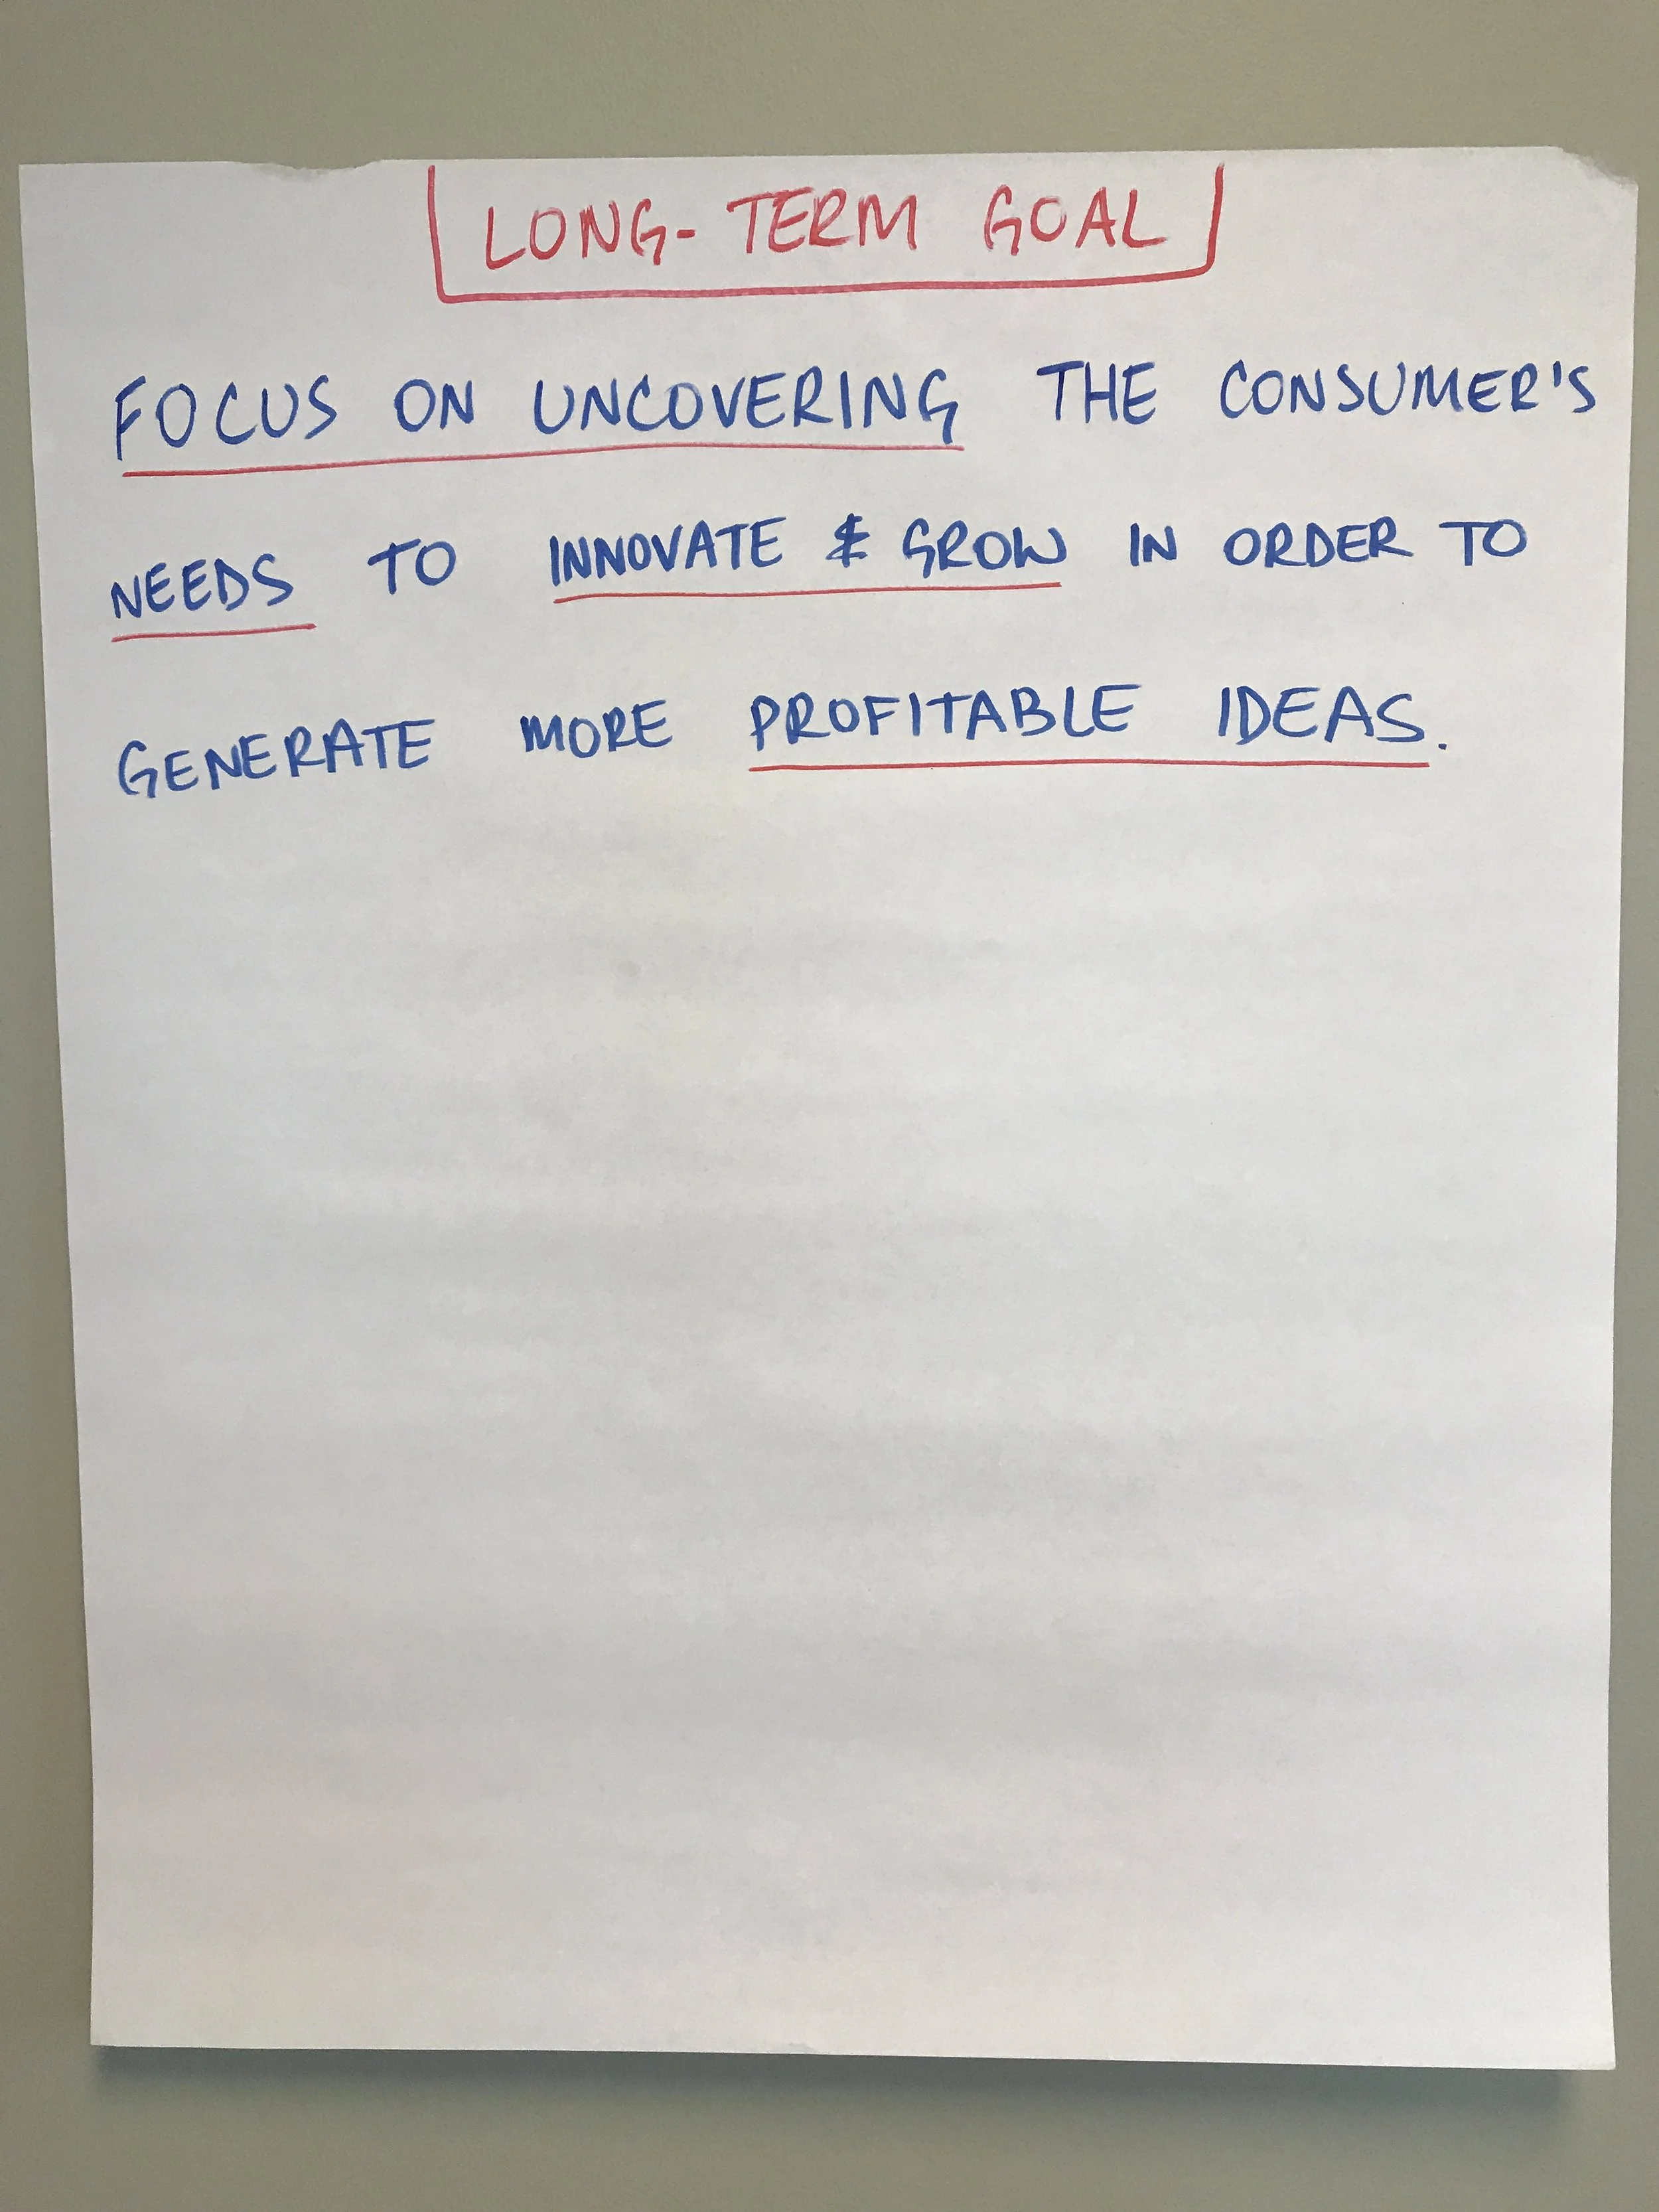 LONG-TERM GOAL
FOCUS ON UNCOVERING THE CONSUMER'S
NEEDS TO INNOVATE & GROW IN ORDER TO
GENERATE MORE PROFITABLE IDEAS.